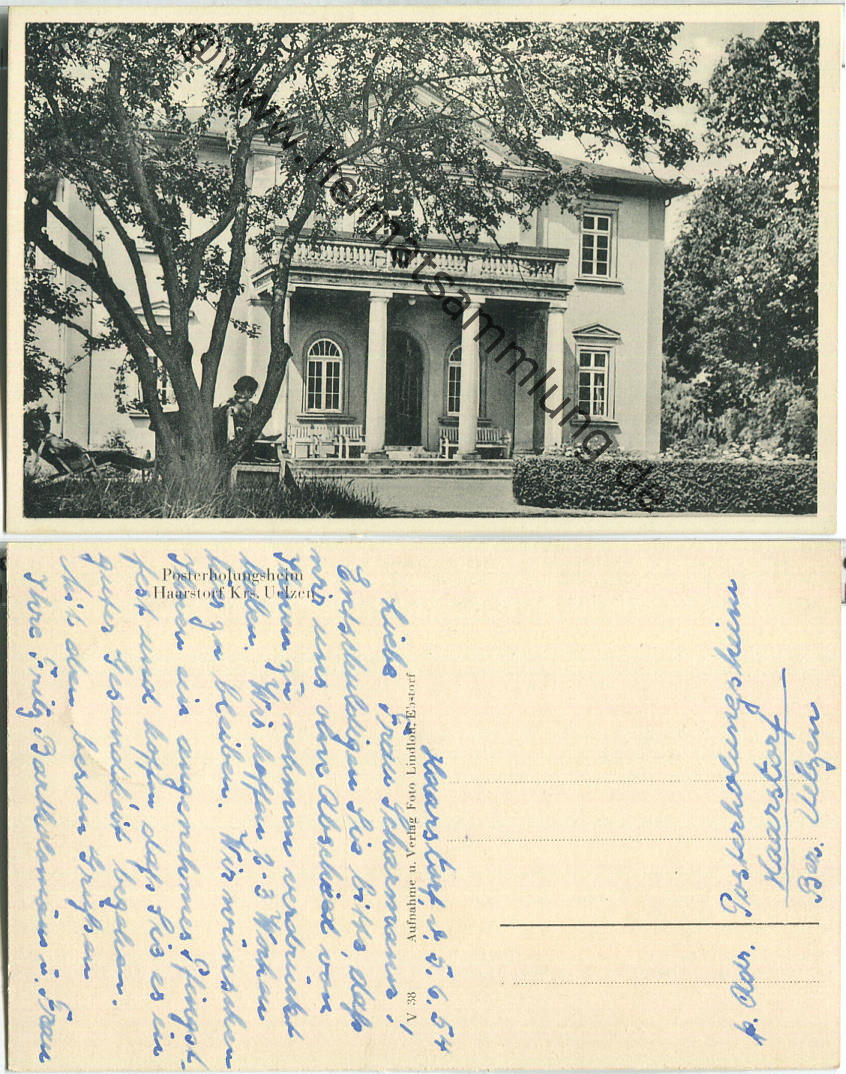 ©www.Heimatsammlung.de
Posterholungsheim
Haarstorf Krs. Uelzen
Haarstorf, d. 5.6.54
Liebe Frau Scharmann,
Entschuldigen Sie bitte, daß
wir uns ohne Abschied von
Ihnen zu nehmen verdrückt
haben. Wir hoffen 2-3 Wochen
hier zu bleiben. Wir wünschen
Ihnen ein angenehmes Pfingst-
fest und hoffen daß Sie es in
guter Gesundheit begehen.
Mit den besten Grüßen
Ihre Fritz Bartholomäus u. Frau
V 38 Aufnahme u. Verlag Foto Lindloff, Ebstorf
p. Adr. Posterholungsheim
Haarstorf
Bez. Uelzen